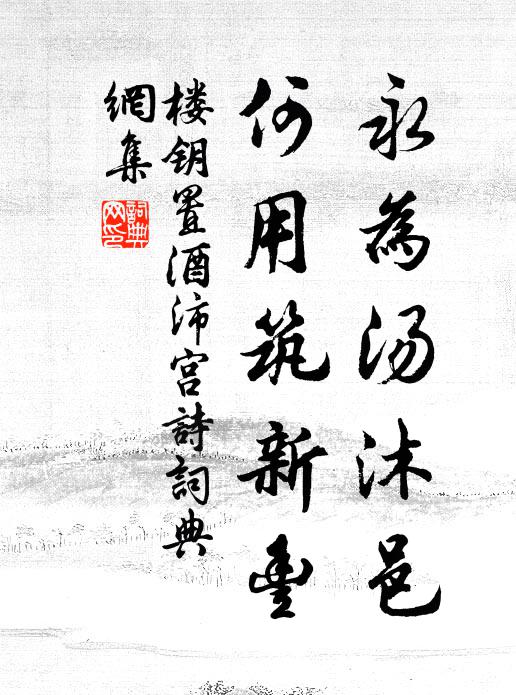 永為汤沐邑
何用筑新豊
楼钥置酒沛宫詩詞典
網集
詞典
网印